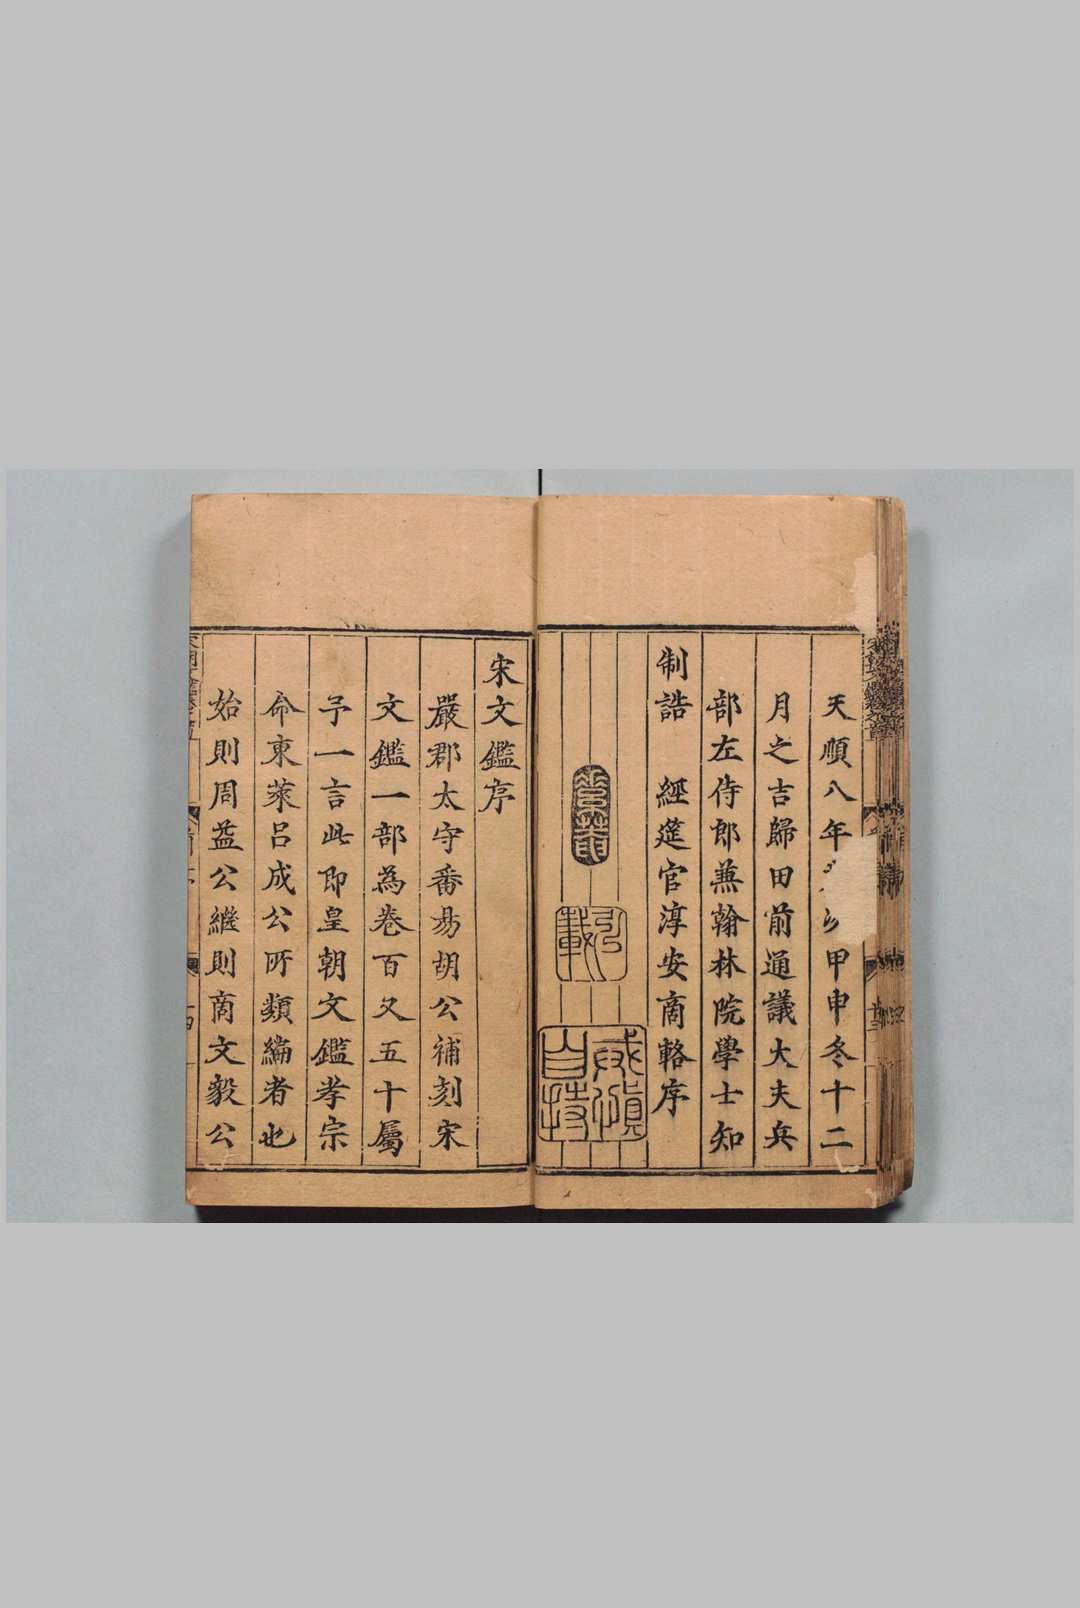 天順八年甲申冬十二
月之吉歸田前通議大夫兵
部左侍郎兼翰林院學士知
制誥　經筵官淳安商輅序
宋文鑑序
嚴郡太守番昜胡公補刻宋
文鑑一部為卷百又五十屬
予一言此即皇朝文鑑孝宗
命東萊呂成公所類編者也
始則周益公繼則商文毅公